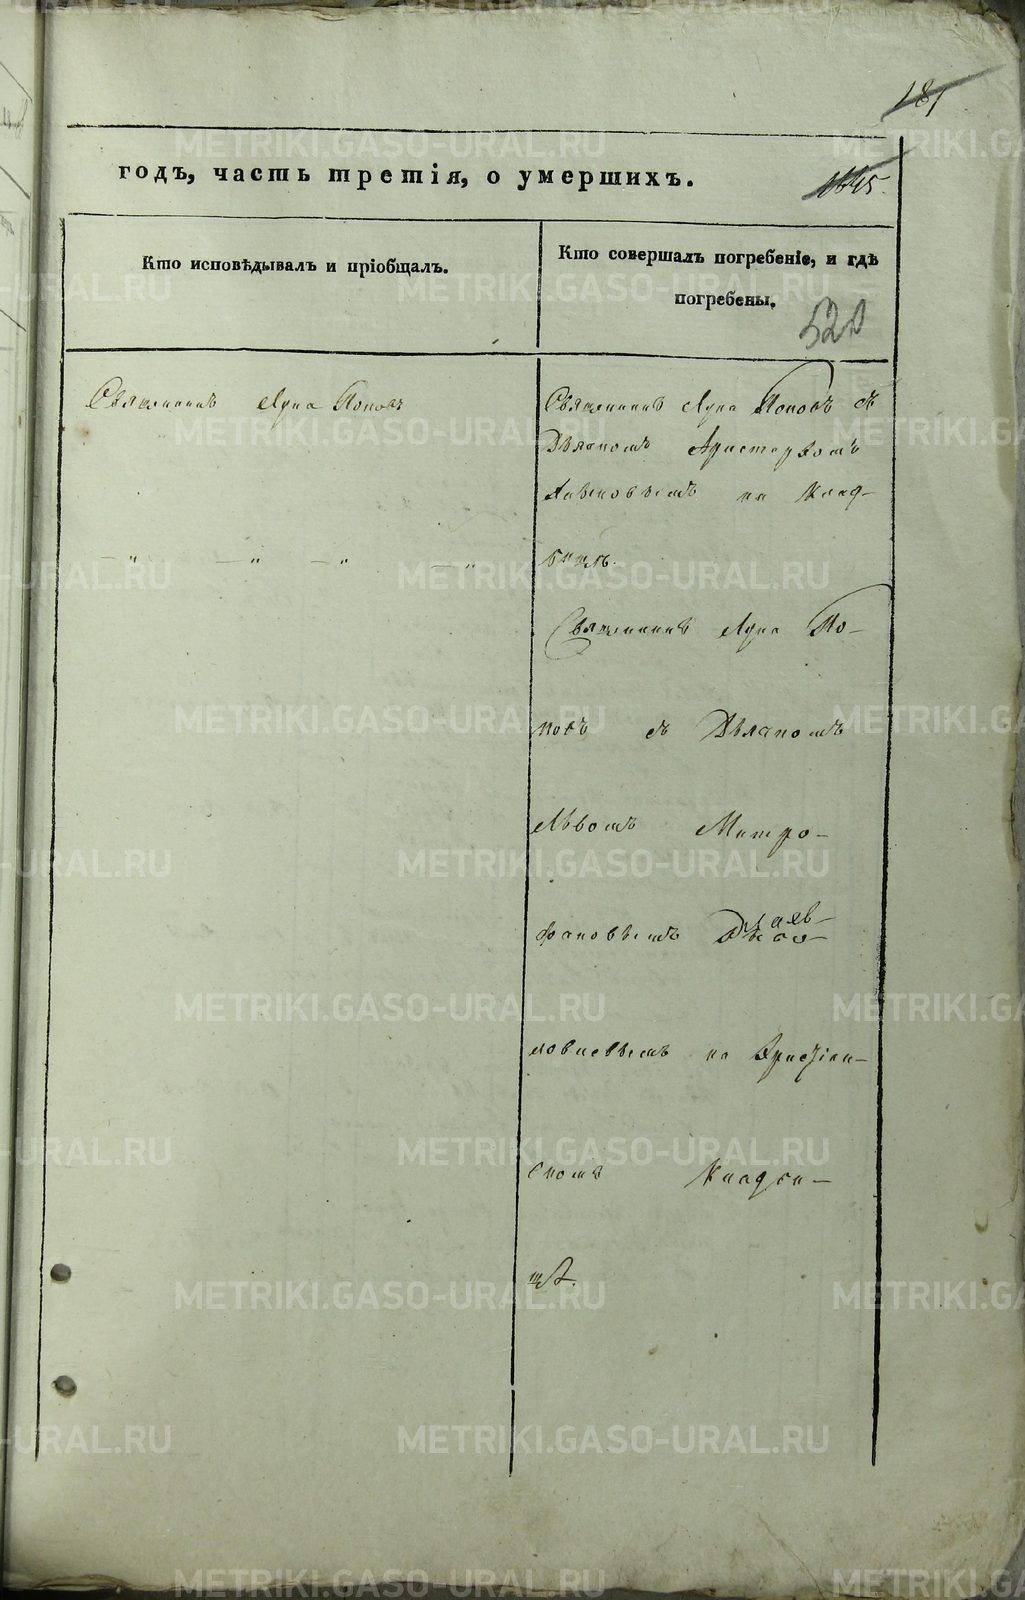 181
годъ, часть третія, о умершихъ.
1645.
Кто исповѣдывалъ и пріобщалъ.
Кто совершалъ погребеніе, и гдѣ
погребены.
520
Священникъ Лука Поповъ
Священникъ Лука Поповъ съ
Дьякономъ Аристархомъ
на Клад-
— " — " — " — "
бищѣ.
Священникъ Лука По-
повъ съ Дьякономъ
Львомъ Митро-
фановымъ
на Христіан-
скомъ Кладби-
щѣ.
METRIKI.GASO-URAL.RU